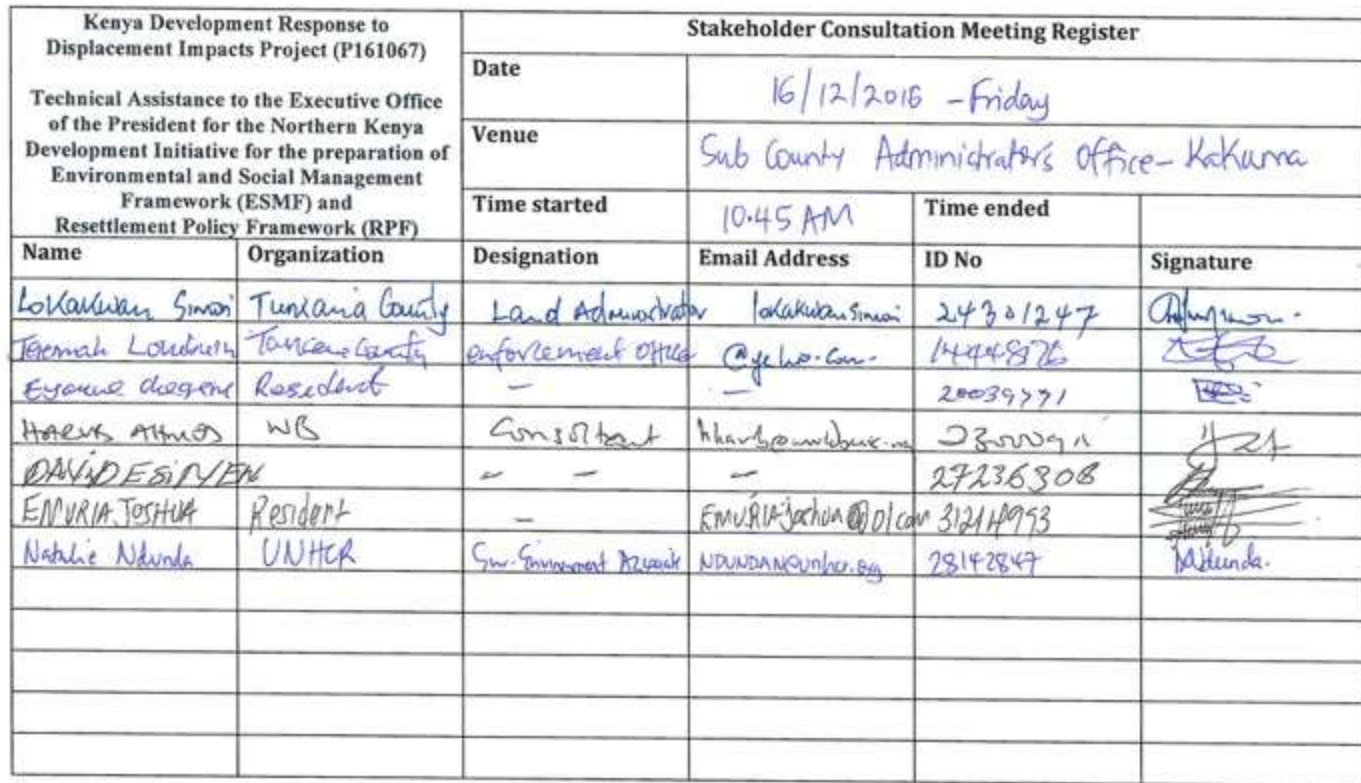 Kenya Development Response to
Displacement Impacts Project (P161067)
Technical Assistance to the Executive Office
of the President for the Northern Kenya
Development Initiative for the preparation of
Environmental and Social Management
Framework (ESMF) and
Resettlement Policy Framework (RPF)
Stakeholder Consultation Meeting Register
Date 16/12/2016 - Friday
Venue Sub County Administrator's Office - Kakuma
Time started 10.45 AM Time ended
Name Organization Designation Email Address ID No Signature
Lokakwan Simon Turkana County Land Administrator lokakwansimon 24301247
County enforcement officer 14448826
Resident -
WB Consultant
DAVID ESINYEN - - - 27236308
EMURIA JOSHUA Resident -
Natalie Ndunda UNHCR 28142847 Ndunda.